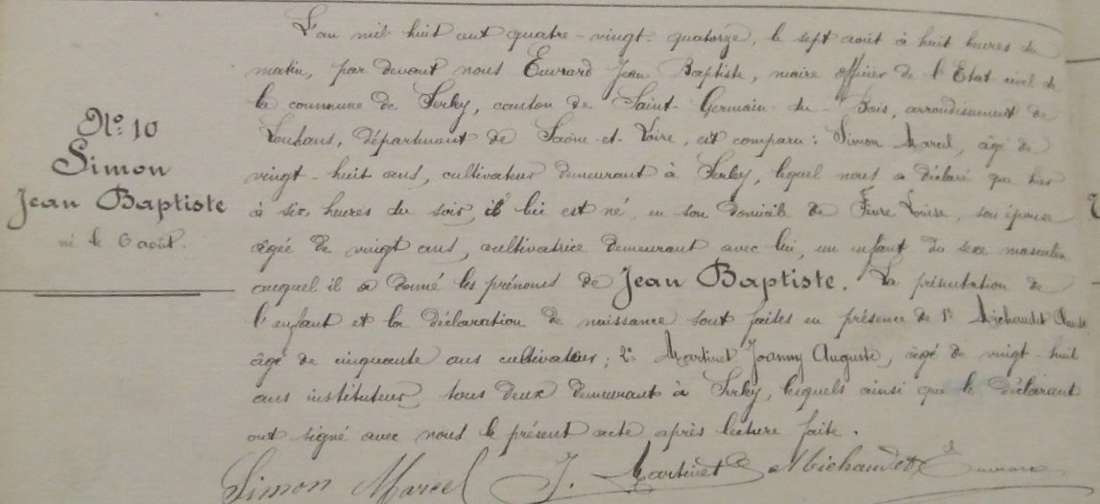 L'an mil huit cent quatre-vingt-quatorze, le sept août à huit heures du
matin, par devant nous Euvrard Jean Baptiste, maire officier de l'Etat civil de
la commune de Serley, canton de Saint-Germain-du-Bois, arrondissement de
Louhans, département de Saône-et-Loire, est comparu : Simon Marcel, âgé de
vingt-huit ans, cultivateur demeurant à Serley, lequel nous a déclaré que hier
à six heures du soir, il lui est né, en son domicile de Louise, son épouse
âgée de vingt ans, cultivatrice demeurant avec lui, un enfant du sexe masculin
auquel il a donné les prénoms de Jean Baptiste. La présentation de
l'enfant et la déclaration de naissance sont faites en présence de 1° Michaudet Claude
âgé de cinquante ans cultivateur ; 2° Martinet Joanny Auguste, âgé de vingt-huit
ans instituteur, tous deux demeurant à Serley, lesquels ainsi que le déclarant
ont signé avec nous le présent acte après lecture faite.
N° 10
Simon
Jean Baptiste
né le 6 août.
Simon Marcel J. Martinet Michaudet Euvrard